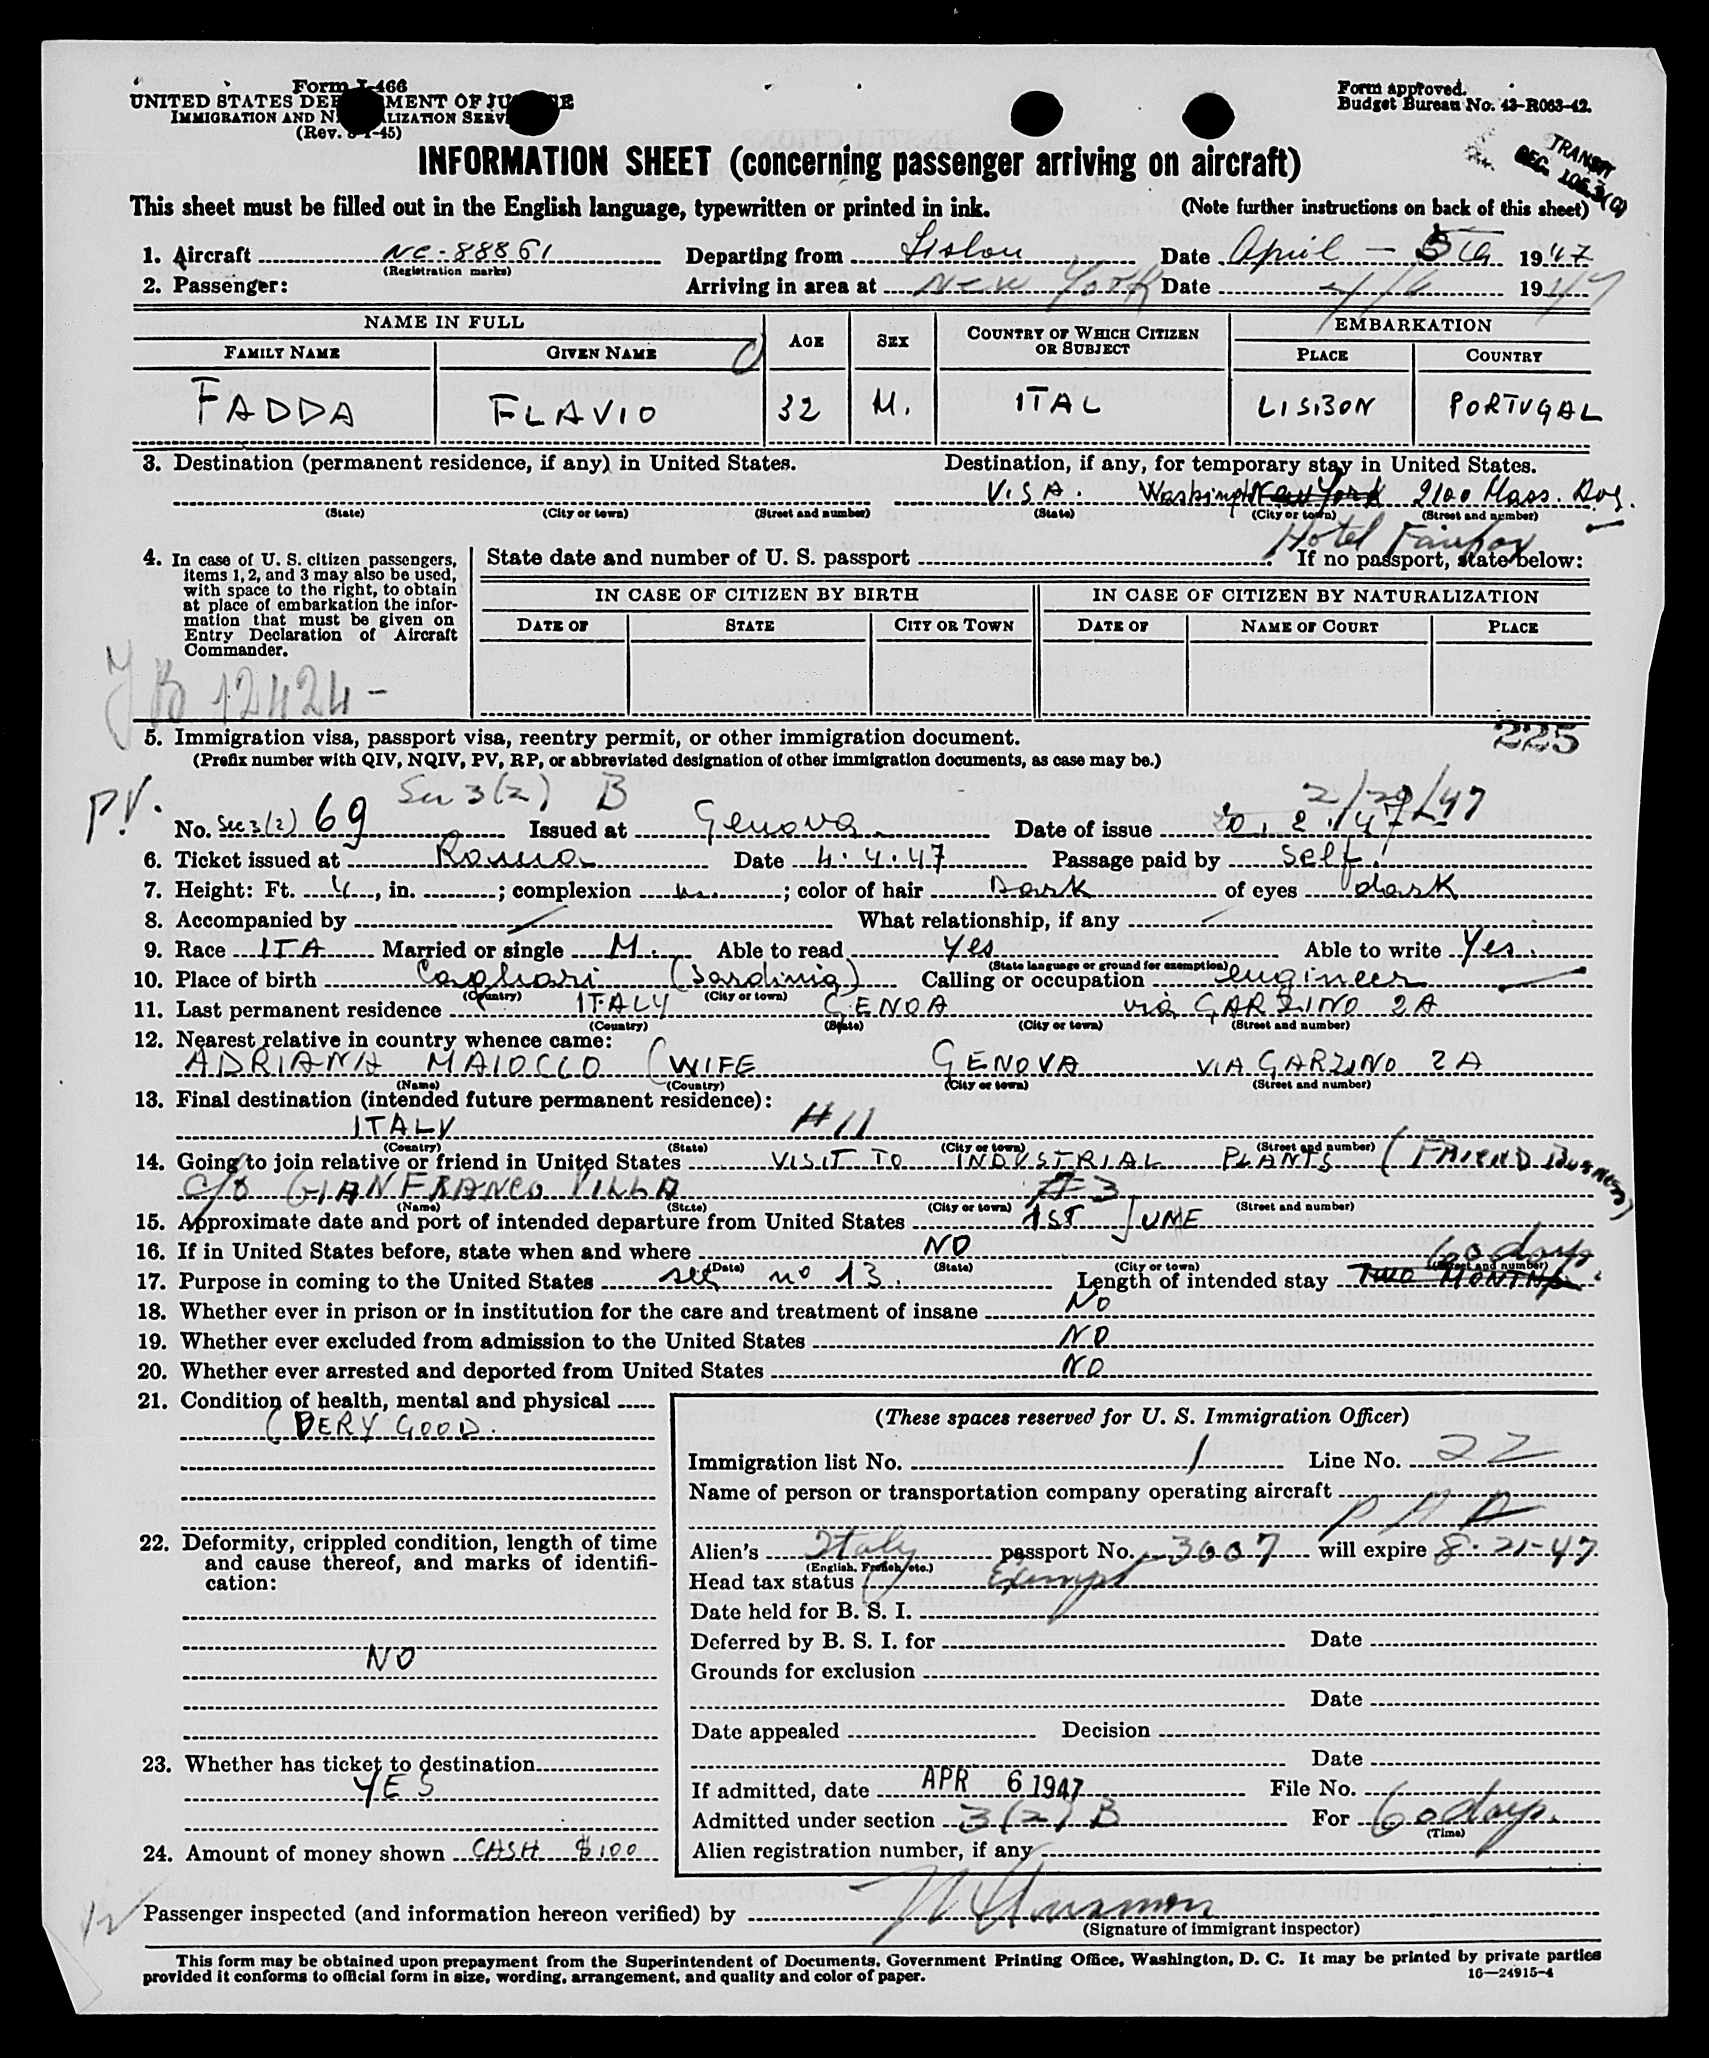 Form I-466
UNITED STATES DEPARTMENT OF JUSTICE
IMMIGRATION AND NATURALIZATION SERVICE
(Rev. -45)
Form approved.
Budget Bureau No. 43-R063-42.
TRANSIT
INFORMATION SHEET (concerning passenger arriving on aircraft)
This sheet must be filled out in the English language, typewritten or printed in ink. (Note further instructions on back of this sheet)
1. Aircraft NC-88861 Departing from Lisbon Date April - 5 1947
(Registration marks)
2. Passenger: Arriving in area at New York Date 4/6 1947
NAME IN FULL AGE SEX COUNTRY OF WHICH CITIZEN OR SUBJECT EMBARKATION
FAMILY NAME GIVEN NAME PLACE COUNTRY
FADDA FLAVIO 32 M. ITAL LISBON PORTUGAL
3. Destination (permanent residence, if any) in United States. Destination, if any, for temporary stay in United States.
Washington New York 2100 Mass. Ave.
(State) (City or town) (Street and number) (State) (City or town) (Street and number)
Hotel Fairfax
4. In case of U. S. citizen passengers, items 1, 2, and 3 may also be used, with space to the right, to obtain at place of embarkation the information that must be given on Entry Declaration of Aircraft Commander.
State date and number of U. S. passport If no passport, state below:
IN CASE OF CITIZEN BY BIRTH IN CASE OF CITIZEN BY NATURALIZATION
DATE OF STATE CITY OR TOWN DATE OF NAME OF COURT PLACE
12424-
225
5. Immigration visa, passport visa, reentry permit, or other immigration document.
(Prefix number with QIV, NQIV, PV, RP, or abbreviated designation of other immigration documents, as case may be.)
P.V. Sec 3(2) B 2/20/47
No. Sec 3(2) 69 Issued at Genova Date of issue 20.2.47
6. Ticket issued at Roma Date 4.4.47 Passage paid by self
7. Height: Ft. , in. ; complexion ; color of hair Dark of eyes dark
8. Accompanied by What relationship, if any
9. Race ITA Married or single M. Able to read yes Able to write Yes.
(State language or ground for exemption)
10. Place of birth Cagliari (Sardinia) Calling or occupation engineer
(Country) (City or town)
11. Last permanent residence ITALY GENOA via GARZINO 2A
(Country) (State) (City or town) (Street and number)
12. Nearest relative in country whence came:
ADRIANA MAIOCCO (WIFE GENOVA VIA GARZINO 2A
(Name) (Country) (City or town) (Street and number)
13. Final destination (intended future permanent residence):
ITALY #11
(Country) (State) (City or town) (Street and number)
14. Going to join relative or friend in United States VISIT TO INDUSTRIAL PLANTS (FRIEND BUSINESS)
c/o GIANFRANCO VILLA #3
(Name) (State) (City or town) (Street and number)
15. Approximate date and port of intended departure from United States 1ST JUNE
16. If in United States before, state when and where NO
(Date) (State) (City or town) (Street and number)
60 days
17. Purpose in coming to the United States see no 13. Length of intended stay TWO MONTHS
18. Whether ever in prison or in institution for the care and treatment of insane No
19. Whether ever excluded from admission to the United States NO
20. Whether ever arrested and deported from United States NO
21. Condition of health, mental and physical
VERY GOOD.
22. Deformity, crippled condition, length of time and cause thereof, and marks of identification:
NO
23. Whether has ticket to destination
YES
24. Amount of money shown CASH $100
(These spaces reserved for U. S. Immigration Officer)
Immigration list No. 1 Line No. 22
Name of person or transportation company operating aircraft
P A A
Alien's Italy passport No. 3007 will expire 8-21-47
(English, French, etc.)
Head tax status Exempt
Date held for B. S. I.
Deferred by B. S. I. for Date
Grounds for exclusion
Date
Date appealed Decision
Date
If admitted, date APR 6 1947 File No.
Admitted under section 3(2) B For 60 days.
(Time)
Alien registration number, if any
Passenger inspected (and information hereon verified) by
(Signature of immigrant inspector)
This form may be obtained upon prepayment from the Superintendent of Documents, Government Printing Office, Washington, D. C. It may be printed by private parties
provided it conforms to official form in size, wording, arrangement, and quality and color of paper. 16—24915-4